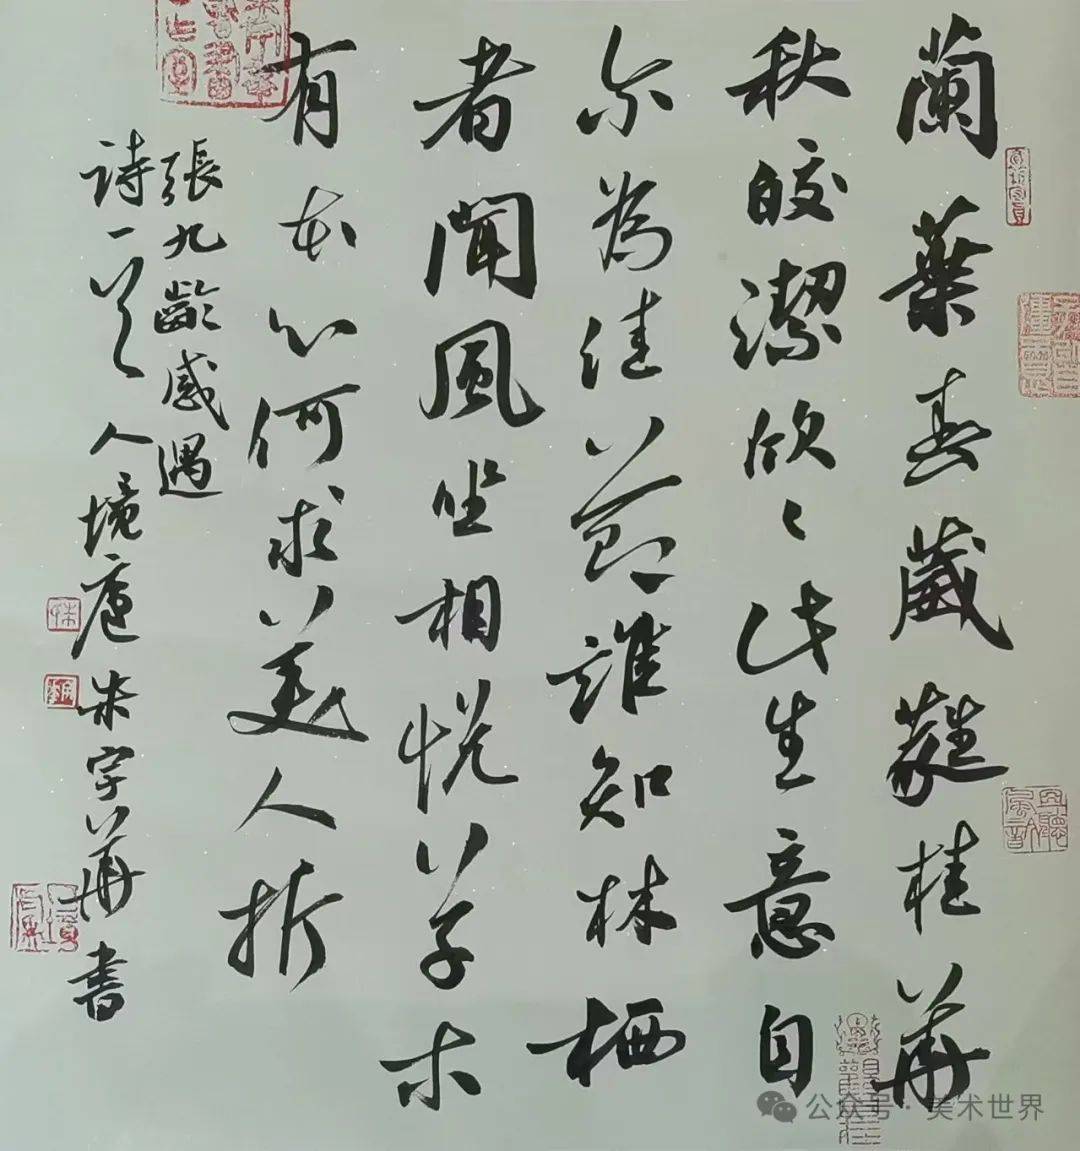 蘭葉春葳蕤桂華
秋皎潔欣々此生意自
尔為佳節誰知林栖
者聞風坐相悦草木
有本心何求美人折
張九齡感遇
詩一首人境廬朱華書
公众号 · 美术世界